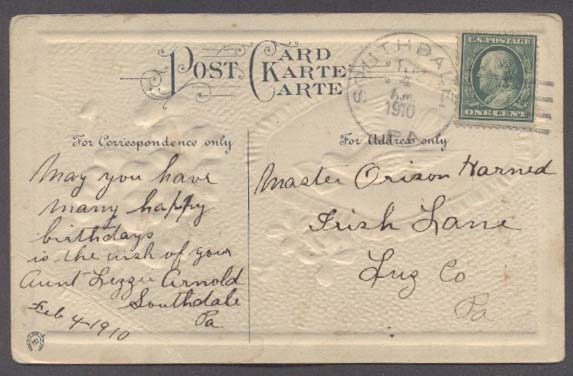 POST CARD
KARTE
CARTE
SOUTHDALE
FEB
A.M.
1910
PA.
U.S. POSTAGE
ONE CENT
For Correspondence only
For Address only
May you have
many happy
birthdays
is the wish of your
Aunt Lizzie Arnold
Southdale
Pa
Feb 4-1910
Master Orison Harned
Irish Lane
Luz Co
Pa